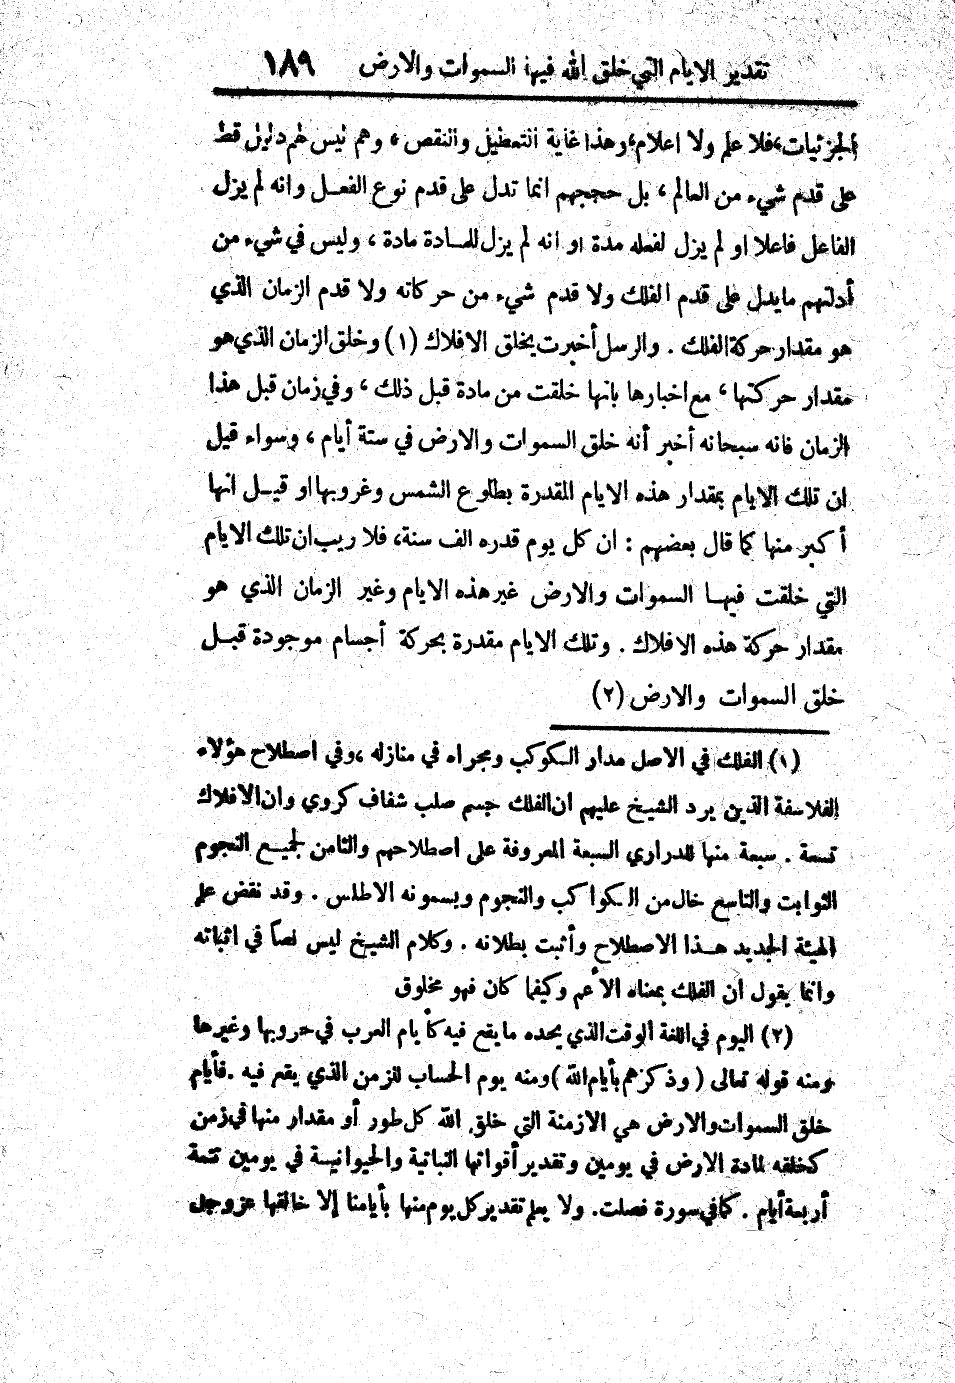 تقدير الايام التي خلق الله فيها السموات والارض ١٨٩
الجزئيات، فلا علم ولا اعلام، وهذا غاية التعطيل والنقص، وهم ليس لهم دليل قط
على قدم شيء من العالم، بل حججهم انما تدل على قدم نوع الفعل وانه لم يزل
الفاعل فاعلا او لم يزل لفعله مدة او انه لم يزل للمادة مادة، وليس في شيء من
أدلتهم ما يدل على قدم الفلك ولا قدم شيء من حركاته ولا قدم الزمان الذي
هو مقدار حركة الفلك . والرسل أخبرت بخلق الافلاك (١) وخلق الزمان الذي هو
مقدار حركتها، مع اخبارها بانها خلقت من مادة قبل ذلك، وفي زمان قبل هذا
الزمان فانه سبحانه أخبر أنه خلق السموات والارض في ستة أيام، وسواء قيل
ان تلك الايام بمقدار هذه الايام المقدرة بطلوع الشمس وغروبها او قيل انها
أكبر منها كما قال بعضهم : ان كل يوم قدره الف سنة، فلا ريب ان تلك الايام
التي خلقت فيها السموات والارض غير هذه الايام وغير الزمان الذي هو
مقدار حركة هذه الافلاك . وتلك الايام مقدرة بحركة أجسام موجودة قبل
خلق السموات والارض (٢)
(١) الفلك في الاصل مدار الكوكب ومجراه في منازله ،وفي اصطلاح هؤلاء
الفلاسفة الذين يرد الشيخ عليهم ان الفلك جسم صلب شفاف كروي وان الافلاك
تسعة . سبعة منها للدراري السبعة المعروفة على اصطلاحهم والثامن لجميع النجوم
الثوابت والتاسع خال من الكواكب والنجوم ويسمونه الاطلس . وقد نقض علم
الهيئة الجديد هذا الاصطلاح وأثبت بطلانه . وكلام الشيخ ليس نصاً في اثباته
وانما يقول ان الفلك بمعناه الأعم وكيفما كان فهو مخلوق
(٢) اليوم في اللغة الوقت الذي يحده ما يقع فيه كأيام العرب في حروبها وغيرها
ومنه قوله تعالى ( وذكرهم بأيام الله ) ومنه يوم الحساب للزمن الذي يقع فيه .فأيام
خلق السموات والارض هي الازمنة التي خلق الله كل طور أو مقدار منها في زمن
كخلقه لمادة الارض في يومين وتقدير أقواتها النباتية والحيوانية في يومين تتمة
أربعة أيام . كما في سورة فصلت. ولا يعلم تقدير كل يوم منها بأيامنا إلا خالقها عز وجل